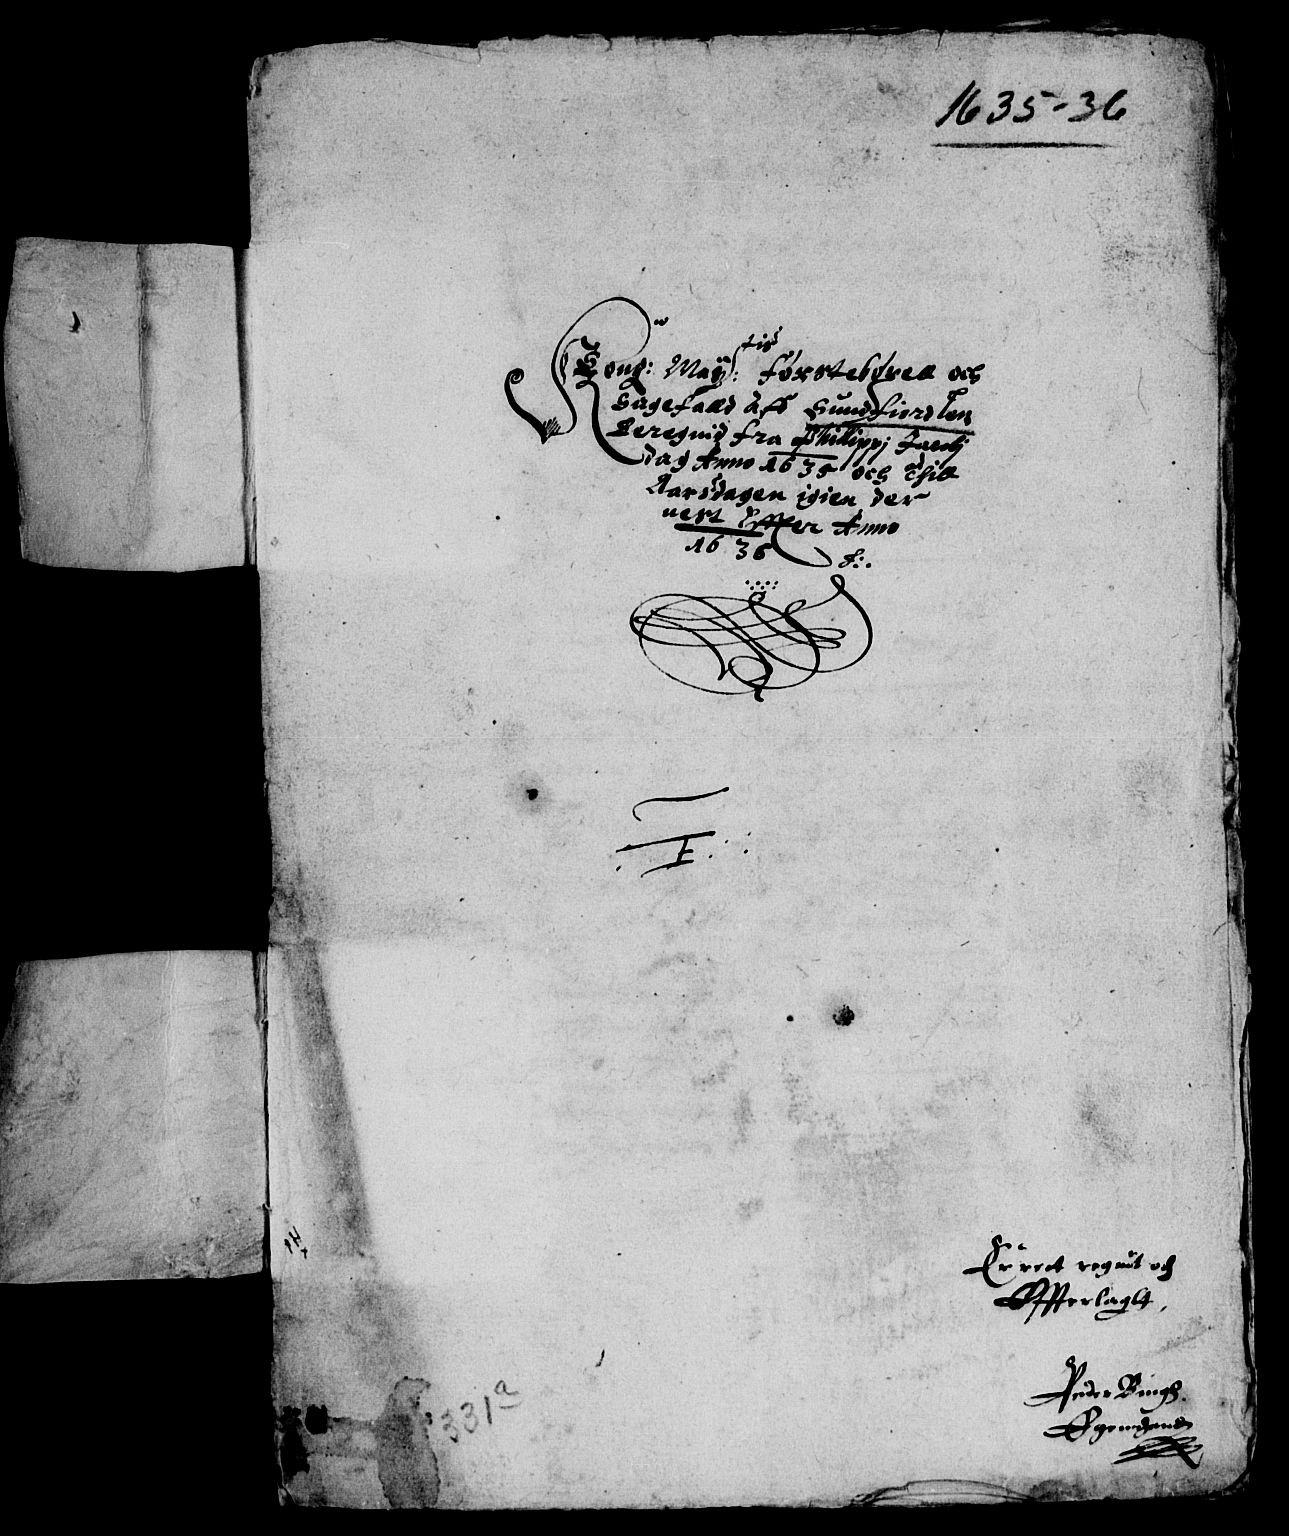 1635-36
Kong: May:tis førstebøxell och
Sagefalld aff Sundfiordlen
Beregnid fra Philippj Jacobj
dag Anno 1635 och thill
Aarsdagen igien der
nest Effter Anno
1636
Er rect regnit och
Offuerlagt
Peder Bingh
Egenhand
331a